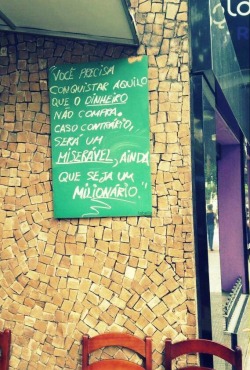 "VOCÊ PRECISA
CONQUISTAR AQUILO
QUE O DINHEIRO
NÃO COMPRA.
CASO CONTRÁRIO,
SERÁ UM
MISERÁVEL, AINDA
QUE SEJA UM
MILIONÁRIO."